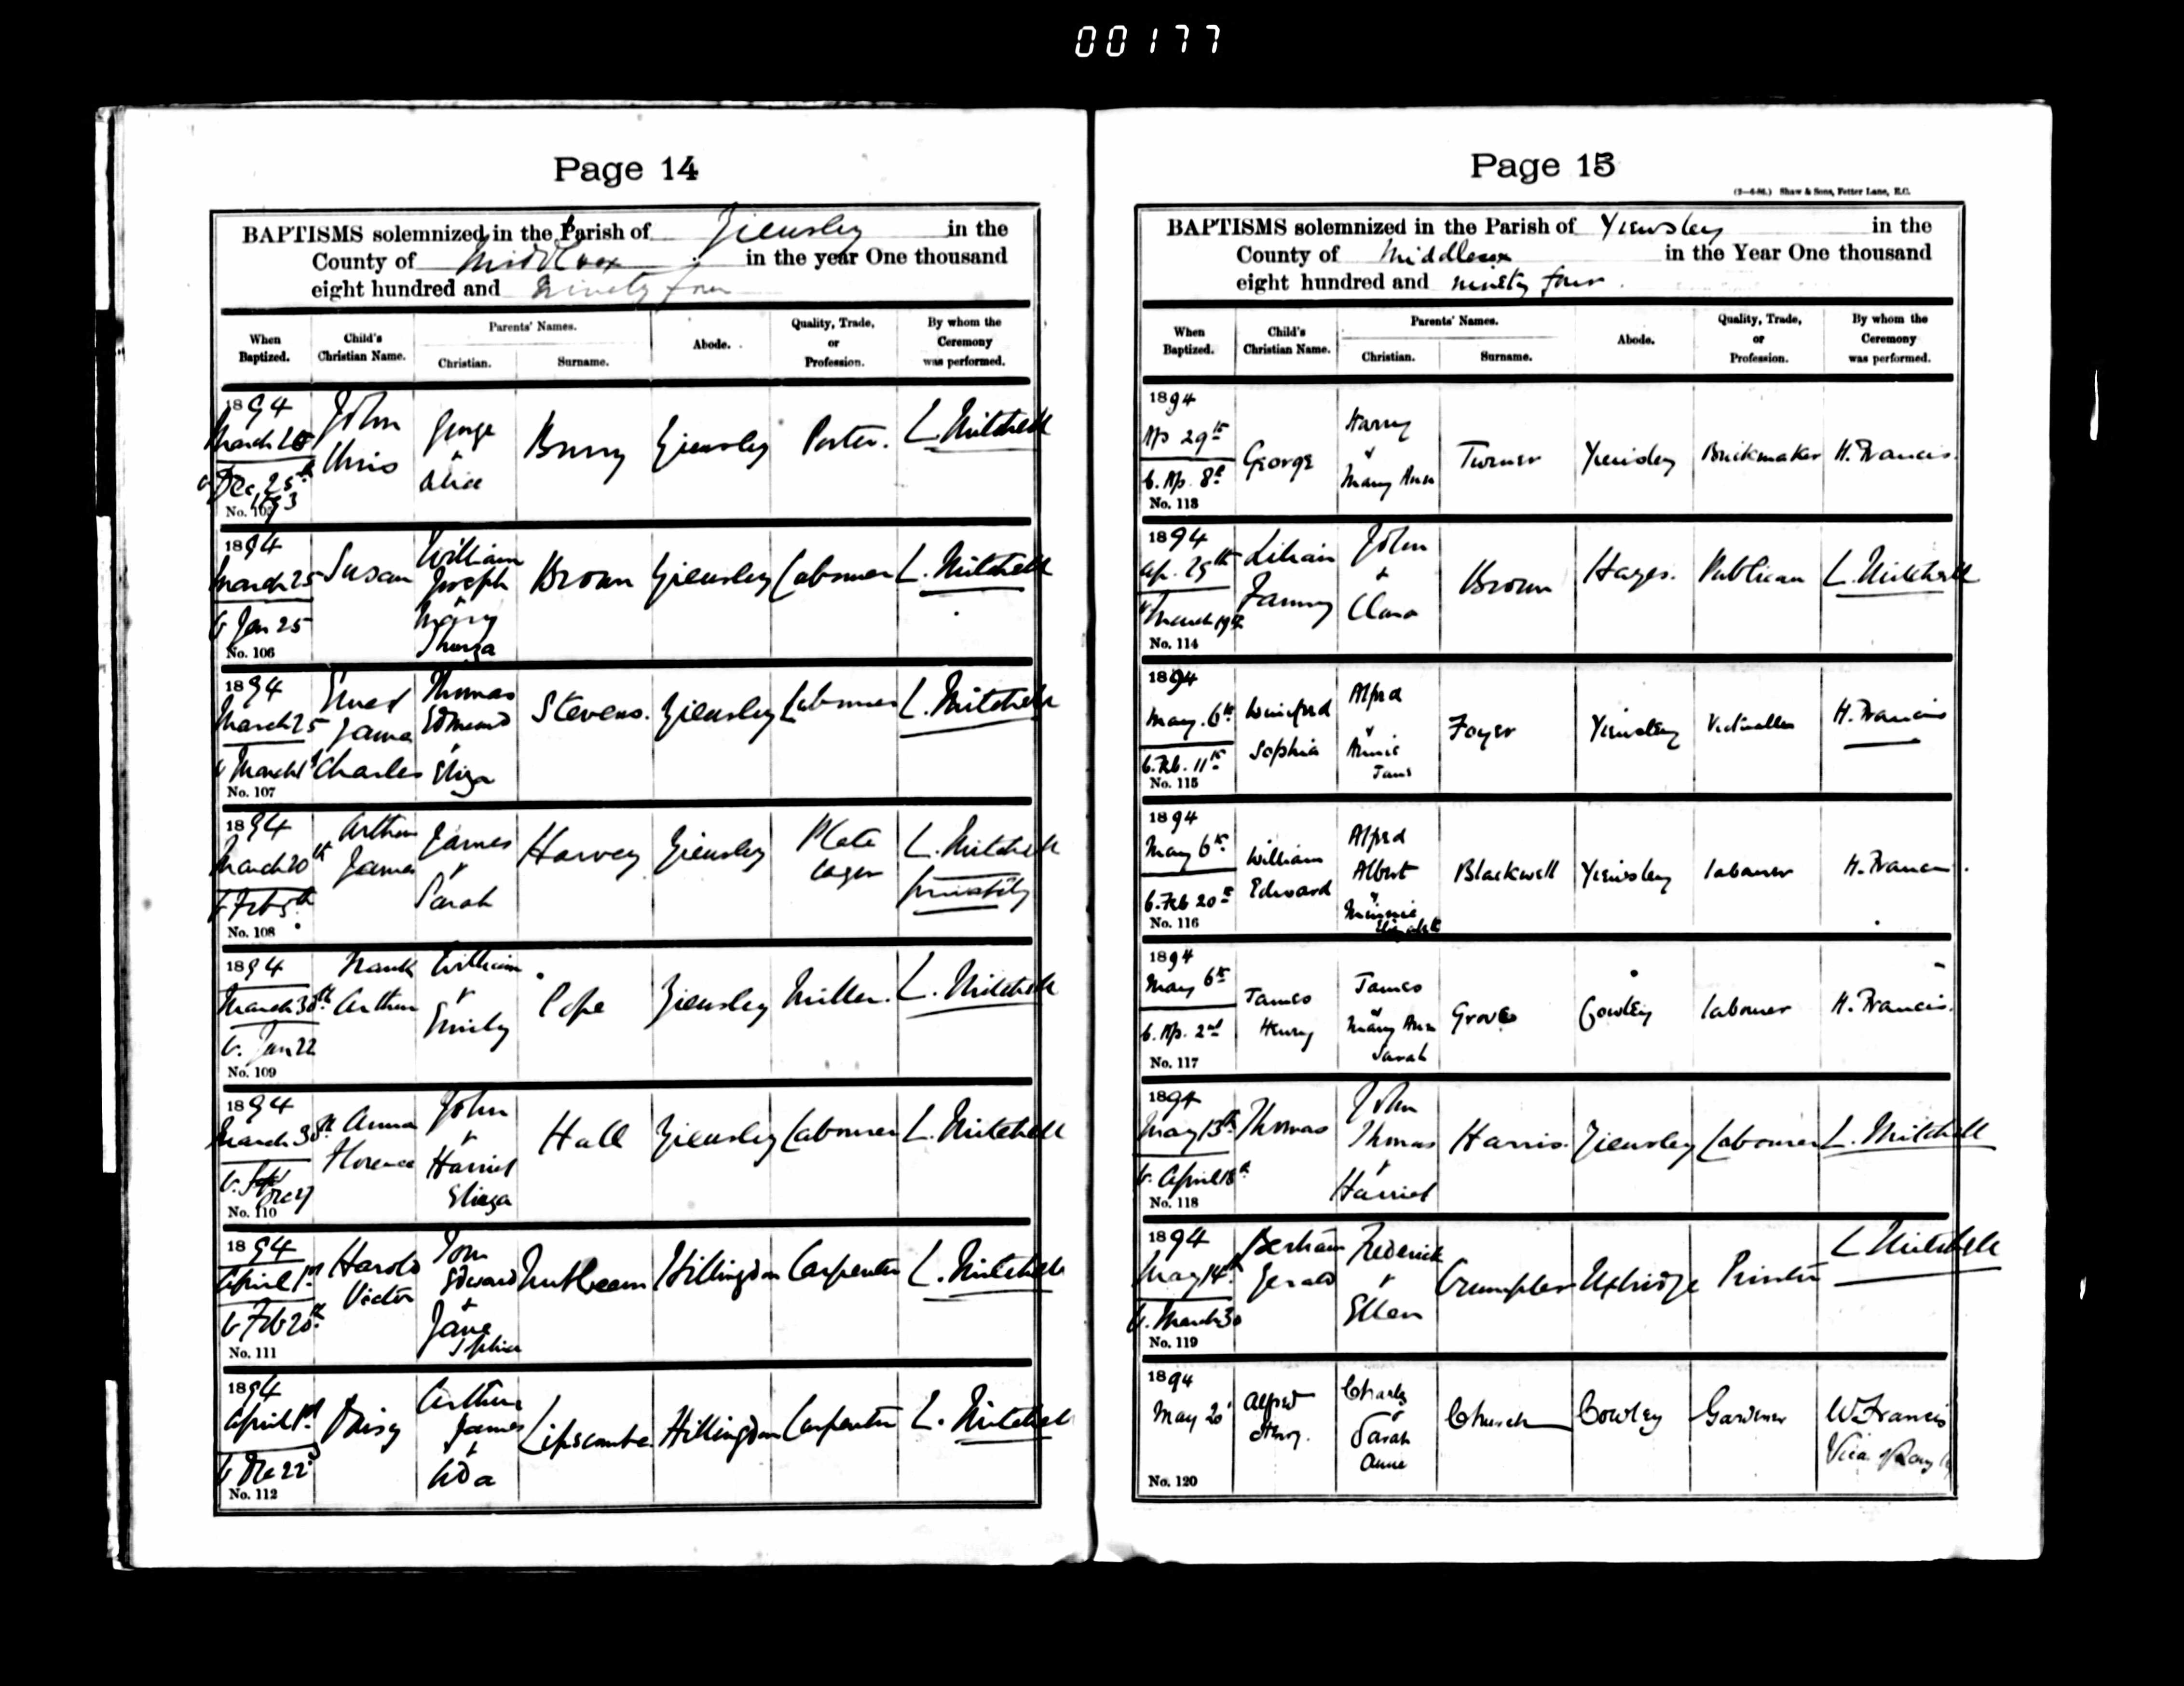 00177
Page 14
BAPTISMS solemnized in the Parish of Yiewsley in the
County of Middlesex in the year One thousand
eight hundred and ninety four
When Baptized. Child's Christian Name. Parents' Names. Christian. Surname. Abode. Quality, Trade, or Profession. By whom the Ceremony was performed.
1894 March 25 Dec. 25th 1893 John George & Alice Yiewsley Porter. L. Mitchell
1894 March 25 b Jan 25 No. 106 Susan William Joseph & Mary Brown Yiewsley Labourer L. Mitchell
1894 March 25 b March 1st No. 107 Ernest James Charles Thomas Edmund & Eliza Stevens. Yiewsley Labourer L. Mitchell
1894 March 20th b Feb 5th No. 108 Arthur James James & Sarah Harvey Yiewsley Plate layer L. Mitchell privately
1894 March 30th b. Jan 22 No. 109 Frank Arthur William & Emily Pope Yiewsley Miller. L. Mitchell
1894 March 30th b. Dec 27 No. 110 Anna Florence John & Harriet Eliza Hall Yiewsley Labourer L. Mitchell
1894 April 1st b Feb 20th No. 111 Harold Victor Tom Edward & Jane Sophia Hillingdon Carpenter L. Mitchell
1894 April 1st b Dec 22 No. 112 Daisy Arthur James & Ada Lipscombe Hillingdon Carpenter L. Mitchell
Page 15
(2—6-86.) Shaw & Sons, Fetter Lane, E.C.
BAPTISMS solemnized in the Parish of Yiewsley in the
County of Middlesex in the Year One thousand
eight hundred and ninety four
When Baptized. Child's Christian Name. Parents' Names. Christian. Surname. Abode. Quality, Trade, or Profession. By whom the Ceremony was performed.
1894 Ap 29th b. Ap. 8th No. 113 George Harry & Mary Ann Turner Yiewsley Brickmaker H. Francis.
1894 Ap. 29th b March 19th No. 114 Lilian Fanny John & Clara Brown Hayes. Publican L. Mitchell
1894 May. 6th b. Feb. 11th No. 115 Winifred Sophia Alfred & Annie Jane Foyer Yiewsley Victualler H. Francis
1894 May 6th b. Feb 20th No. 116 William Edward Alfred Albert & Minnie Elizabeth Blackwell Yiewsley Labourer H. Francis.
1894 May 6th b. Ap. 2nd No. 117 James Henry James & Mary Ann Sarah Grove Cowley Labourer H. Francis.
1894 May 13th b. April 18th No. 118 Thomas John Thomas & Harriet Harris. Yiewsley Labourer L. Mitchell
1894 May 14th b. March 30 No. 119 Bertram Gerald Frederick & Ellen Crumpler Uxbridge Printer L Mitchell
1894 May 20 No. 120 Alfred Henry. Charles & Sarah Anne Church Cowley Gardener W. Francis